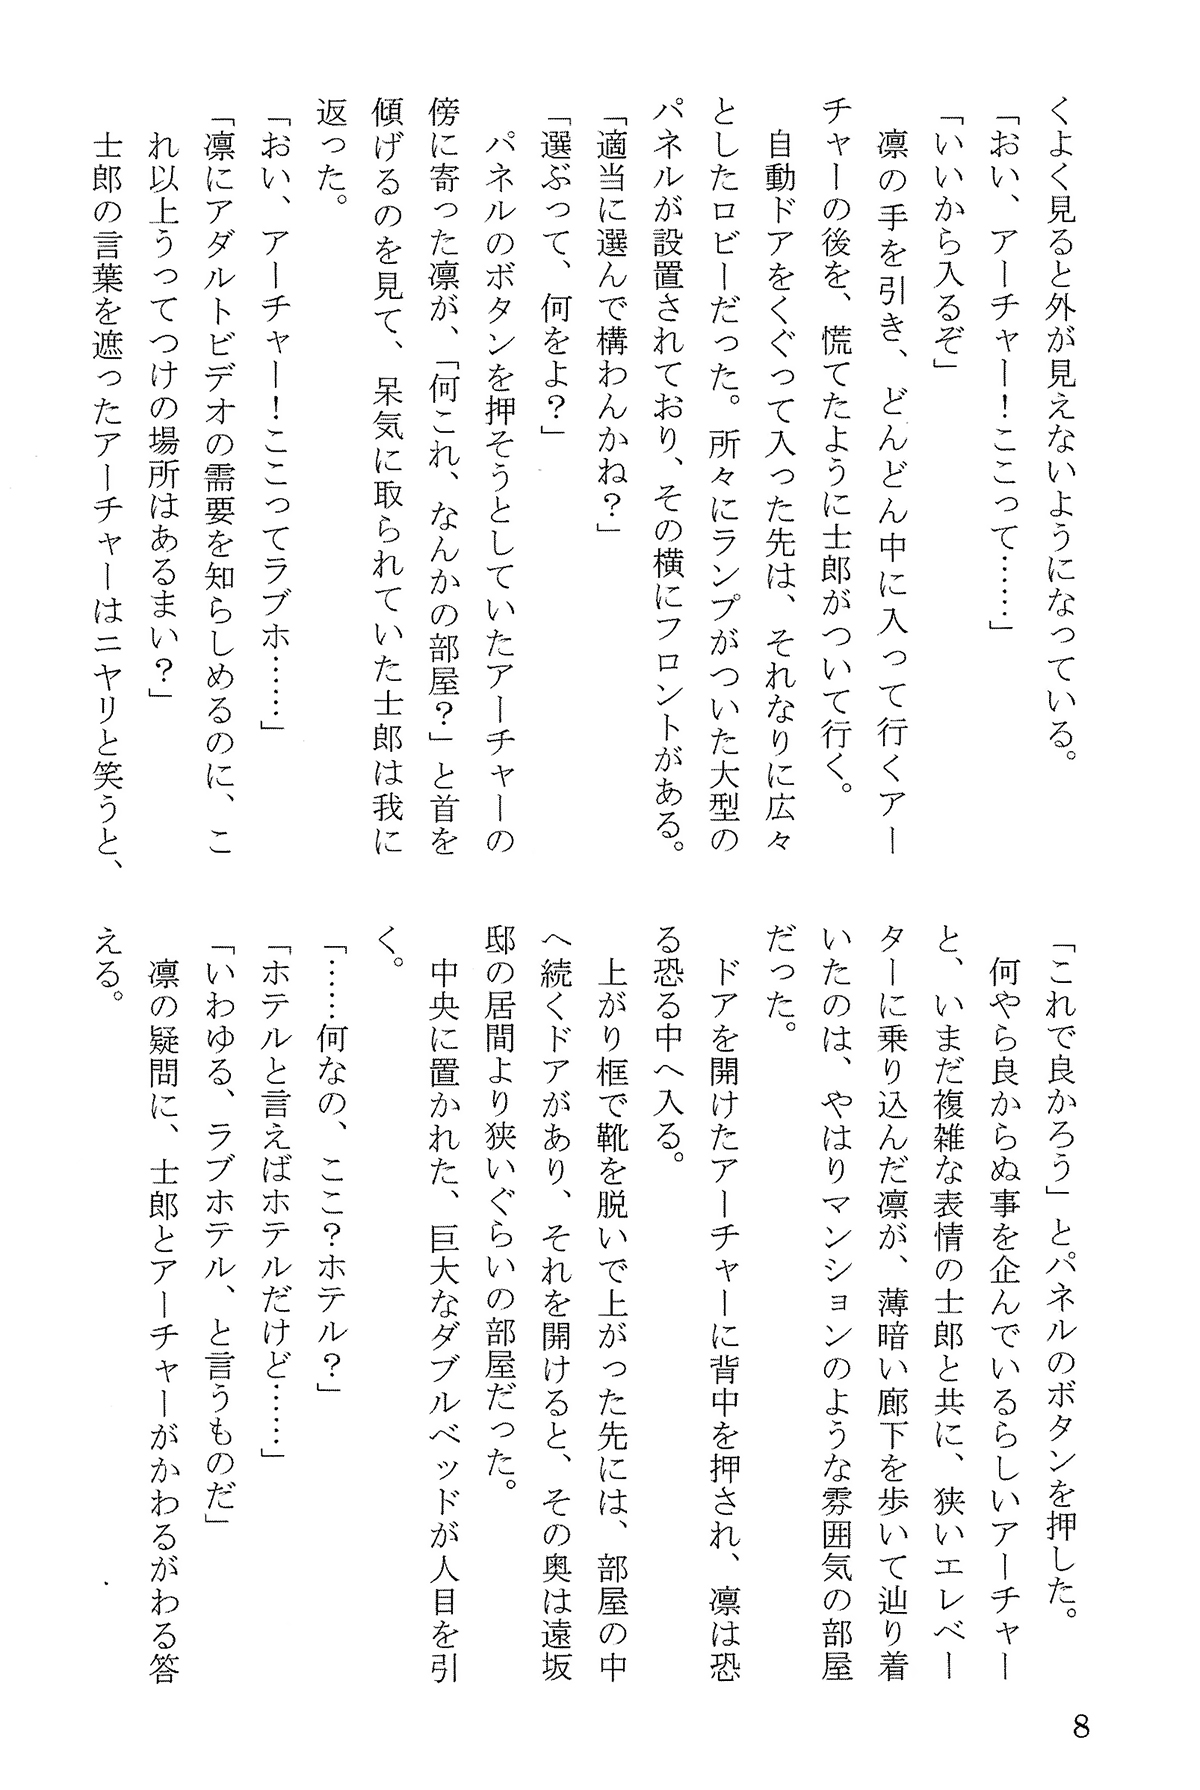 くよく見ると外が見えないようになっている。
「おい、アーチャー！ここって……」
「いいから入るぞ」
凛の手を引き、どんどん中に入って行くアー
チャーの後を、慌てたように士郎がついて行く。
自動ドアをくぐって入った先は、それなりに広々
としたロビーだった。所々にランプがついた大型の
パネルが設置されており、その横にフロントがある。
「適当に選んで構わんかね？」
「選ぶって、何をよ？」
パネルのボタンを押そうとしていたアーチャーの
傍に寄った凛が、「何これ、なんかの部屋？」と首を
傾げるのを見て、呆気に取られていた士郎は我に
返った。
「おい、アーチャー！ここってラブホ……」
「凛にアダルトビデオの需要を知らしめるのに、こ
れ以上うってつけの場所はあるまい？」
士郎の言葉を遮ったアーチャーはニヤリと笑うと、
「これで良かろう」とパネルのボタンを押した。
何やら良からぬ事を企んでいるらしいアーチャー
と、いまだ複雑な表情の士郎と共に、狭いエレベー
ターに乗り込んだ凛が、薄暗い廊下を歩いて辿り着
いたのは、やはりマンションのような雰囲気の部屋
だった。
ドアを開けたアーチャーに背中を押され、凛は恐
る恐る中へ入る。
上がり框で靴を脱いで上がった先には、部屋の中
へ続くドアがあり、それを開けると、その奥は遠坂
邸の居間より狭いぐらいの部屋だった。
中央に置かれた、巨大なダブルベッドが人目を引
く。
「……何なの、ここ？ホテル？」
「ホテルと言えばホテルだけど……」
「いわゆる、ラブホテル、と言うものだ」
凛の疑問に、士郎とアーチャーがかわるがわる答
える。
8